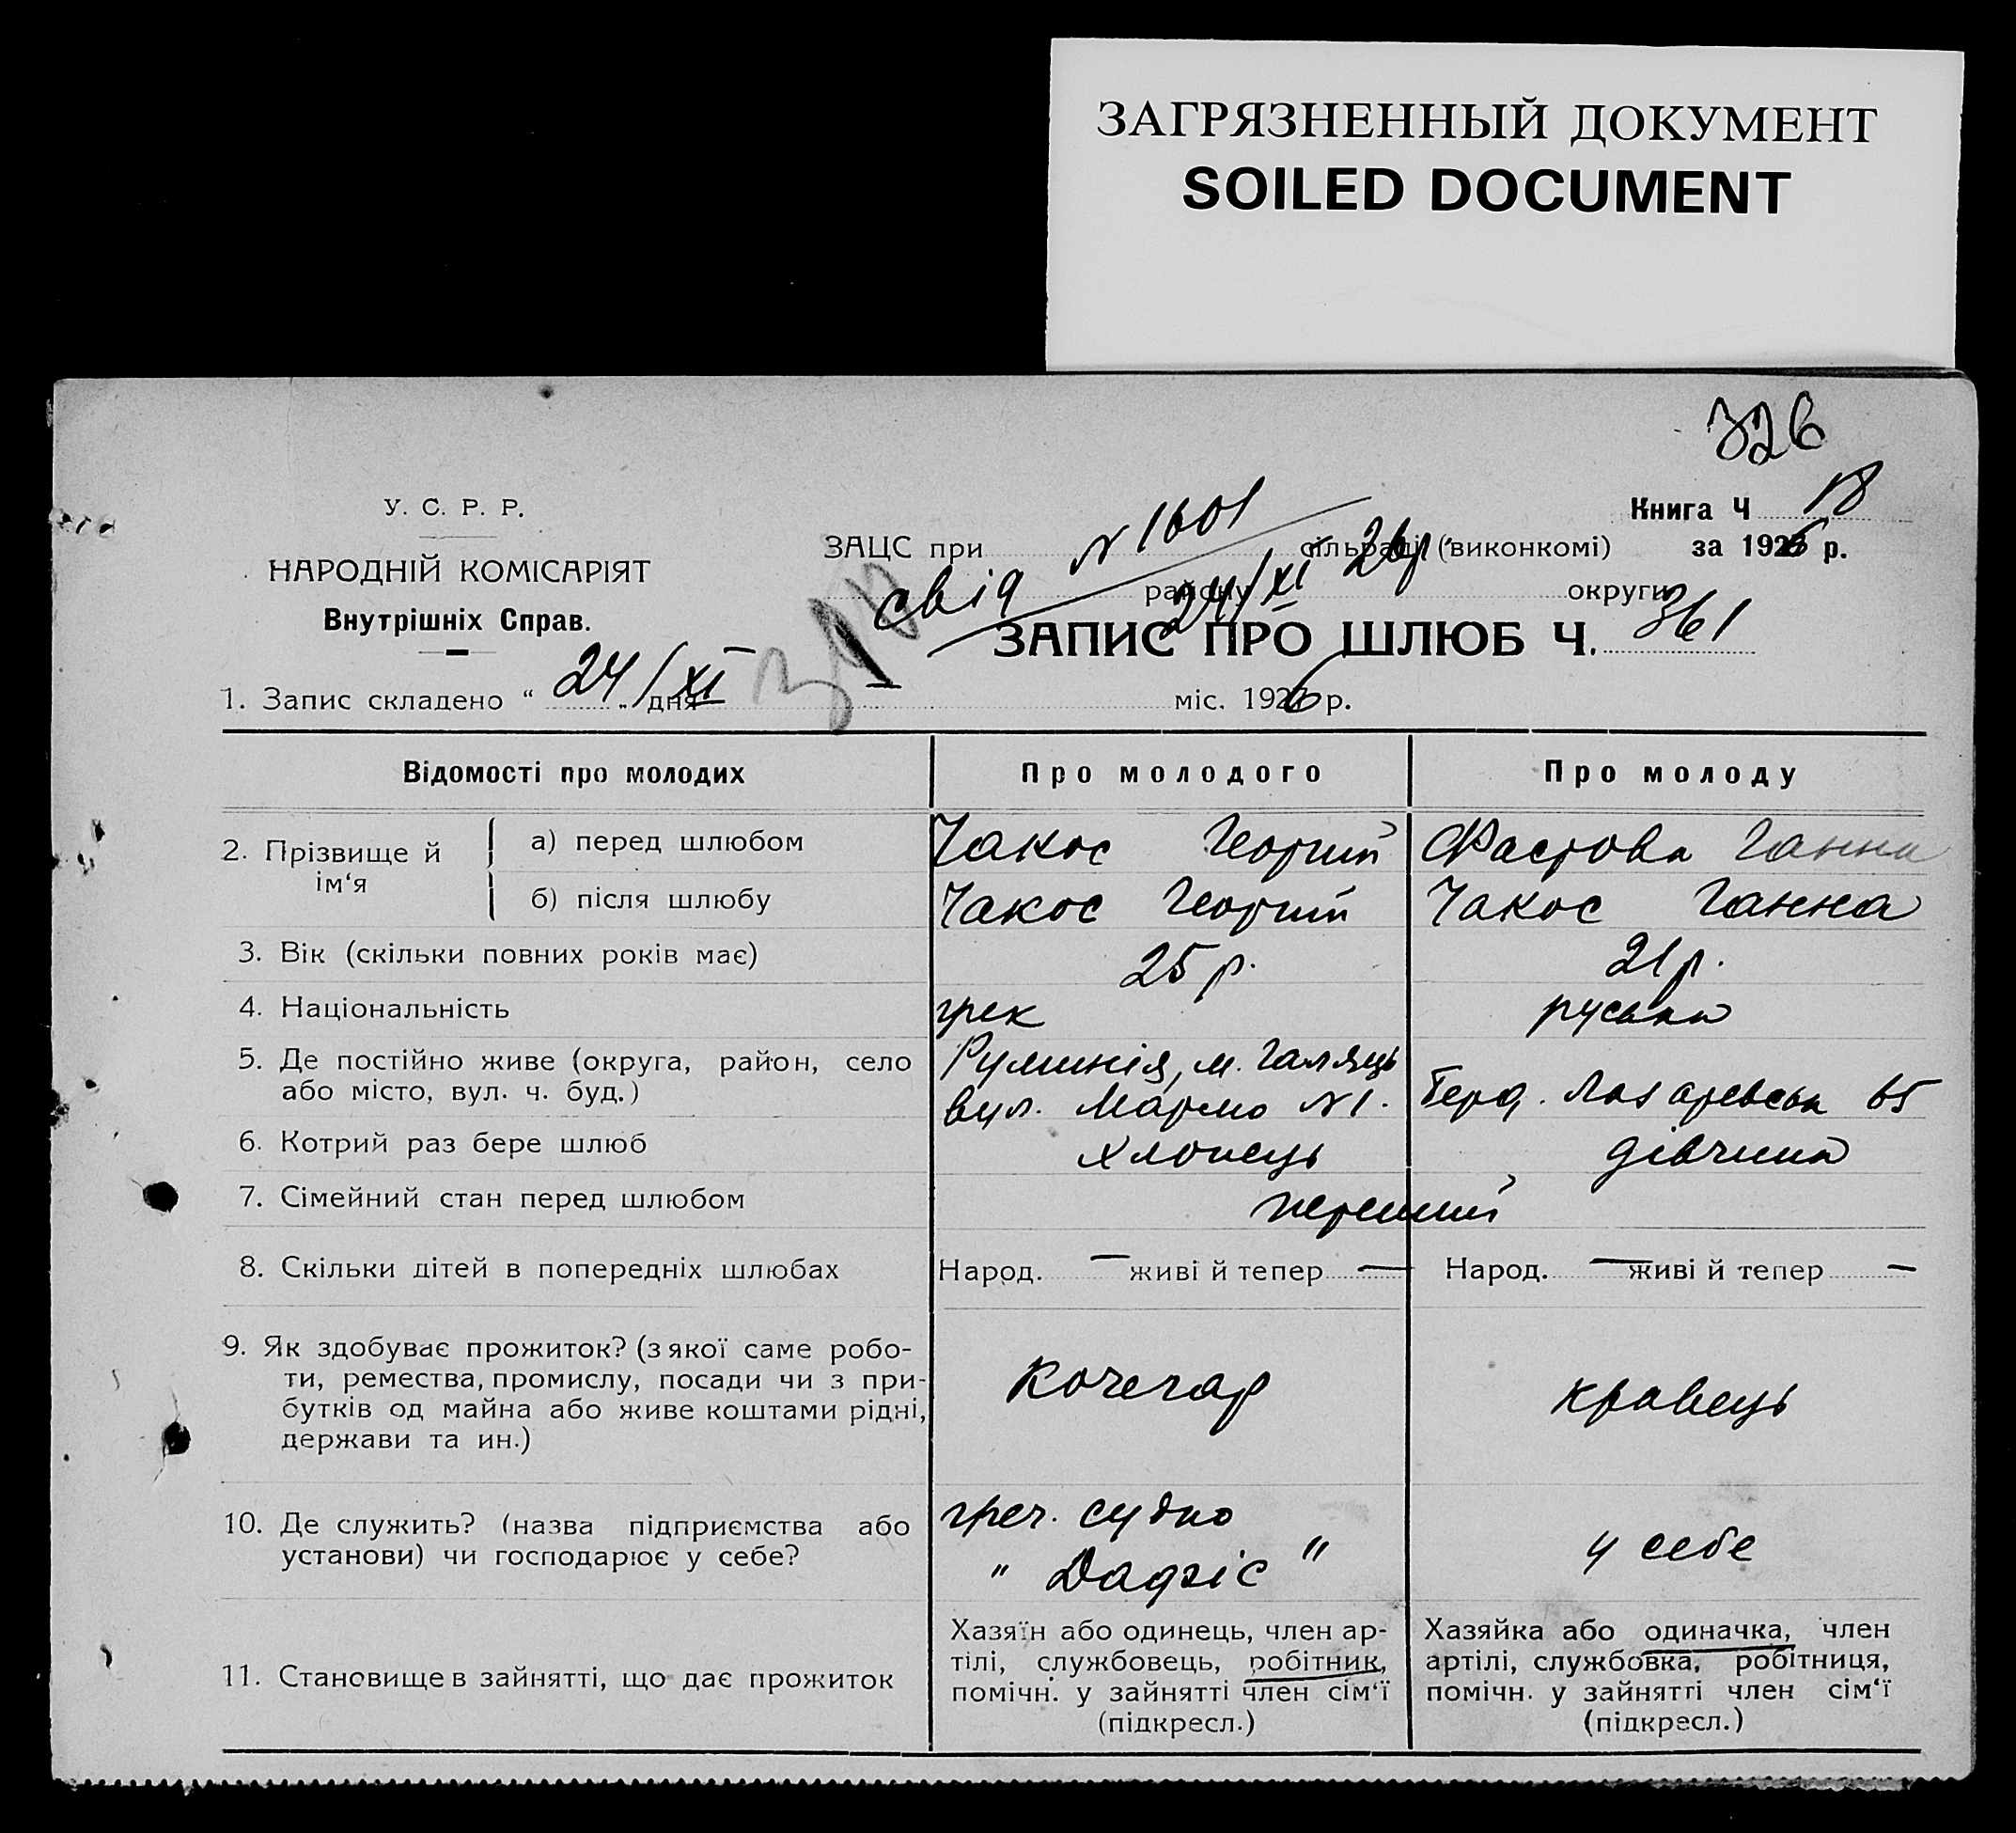 ЗАГРЯЗНЕННЫЙ ДОКУМЕНТ
SOILED DOCUMENT
326
У. С. Р. Р.
НАРОДНІЙ КОМІСАРІЯТ
Внутрішніх Справ.
Книга Ч 18
за 1926 р.
ЗАЦС при сільраді (виконкомі)
району округи
свід N 1601
24/XI 26р.
ЗАПИС ПРО ШЛЮБ Ч. 361
1. Запис складено “ 24/XI „ дня міс. 1926 р.
Відомості про молодих Про молодого Про молоду
2. Прізвище й ім‘я
а) перед шлюбом Чакос Георгий Ганна
б) після шлюбу Чакос Георгий Чакос Ганна
3. Вік (скільки повних років має) 25 р. 21 р.
4. Національність грек руська
5. Де постійно живе (округа, район, село
або місто, вул. ч. буд.)
Руминія, м. Галяць
вул. N 1.
Лазаревська 65
6. Котрий раз бере шлюб хлопець дівчина
7. Сімейний стан перед шлюбом перший
8. Скільки дітей в попередніх шлюбах Народ. — живі й тепер — Народ. — живі й тепер —
9. Як здобуває прожиток? (з якої саме робо-
ти, ремества, промислу, посади чи з при-
бутків од майна або живе коштами рідні,
держави та ин.)
Кочегар кравець
10. Де служить? (назва підприємства або
установи) чи господарює у себе?
греч. судно
у себе
11. Становище в зайнятті, що дає прожиток
Хазяїн або одинець, член ар-
тілі, службовець, робітник,
помічн. у зайнятті член сім‘ї
(підкресл.)
Хазяйка або одиначка, член
артілі, службовка, робітниця,
помічн. у зайнятті член сім‘ї
(підкресл.)